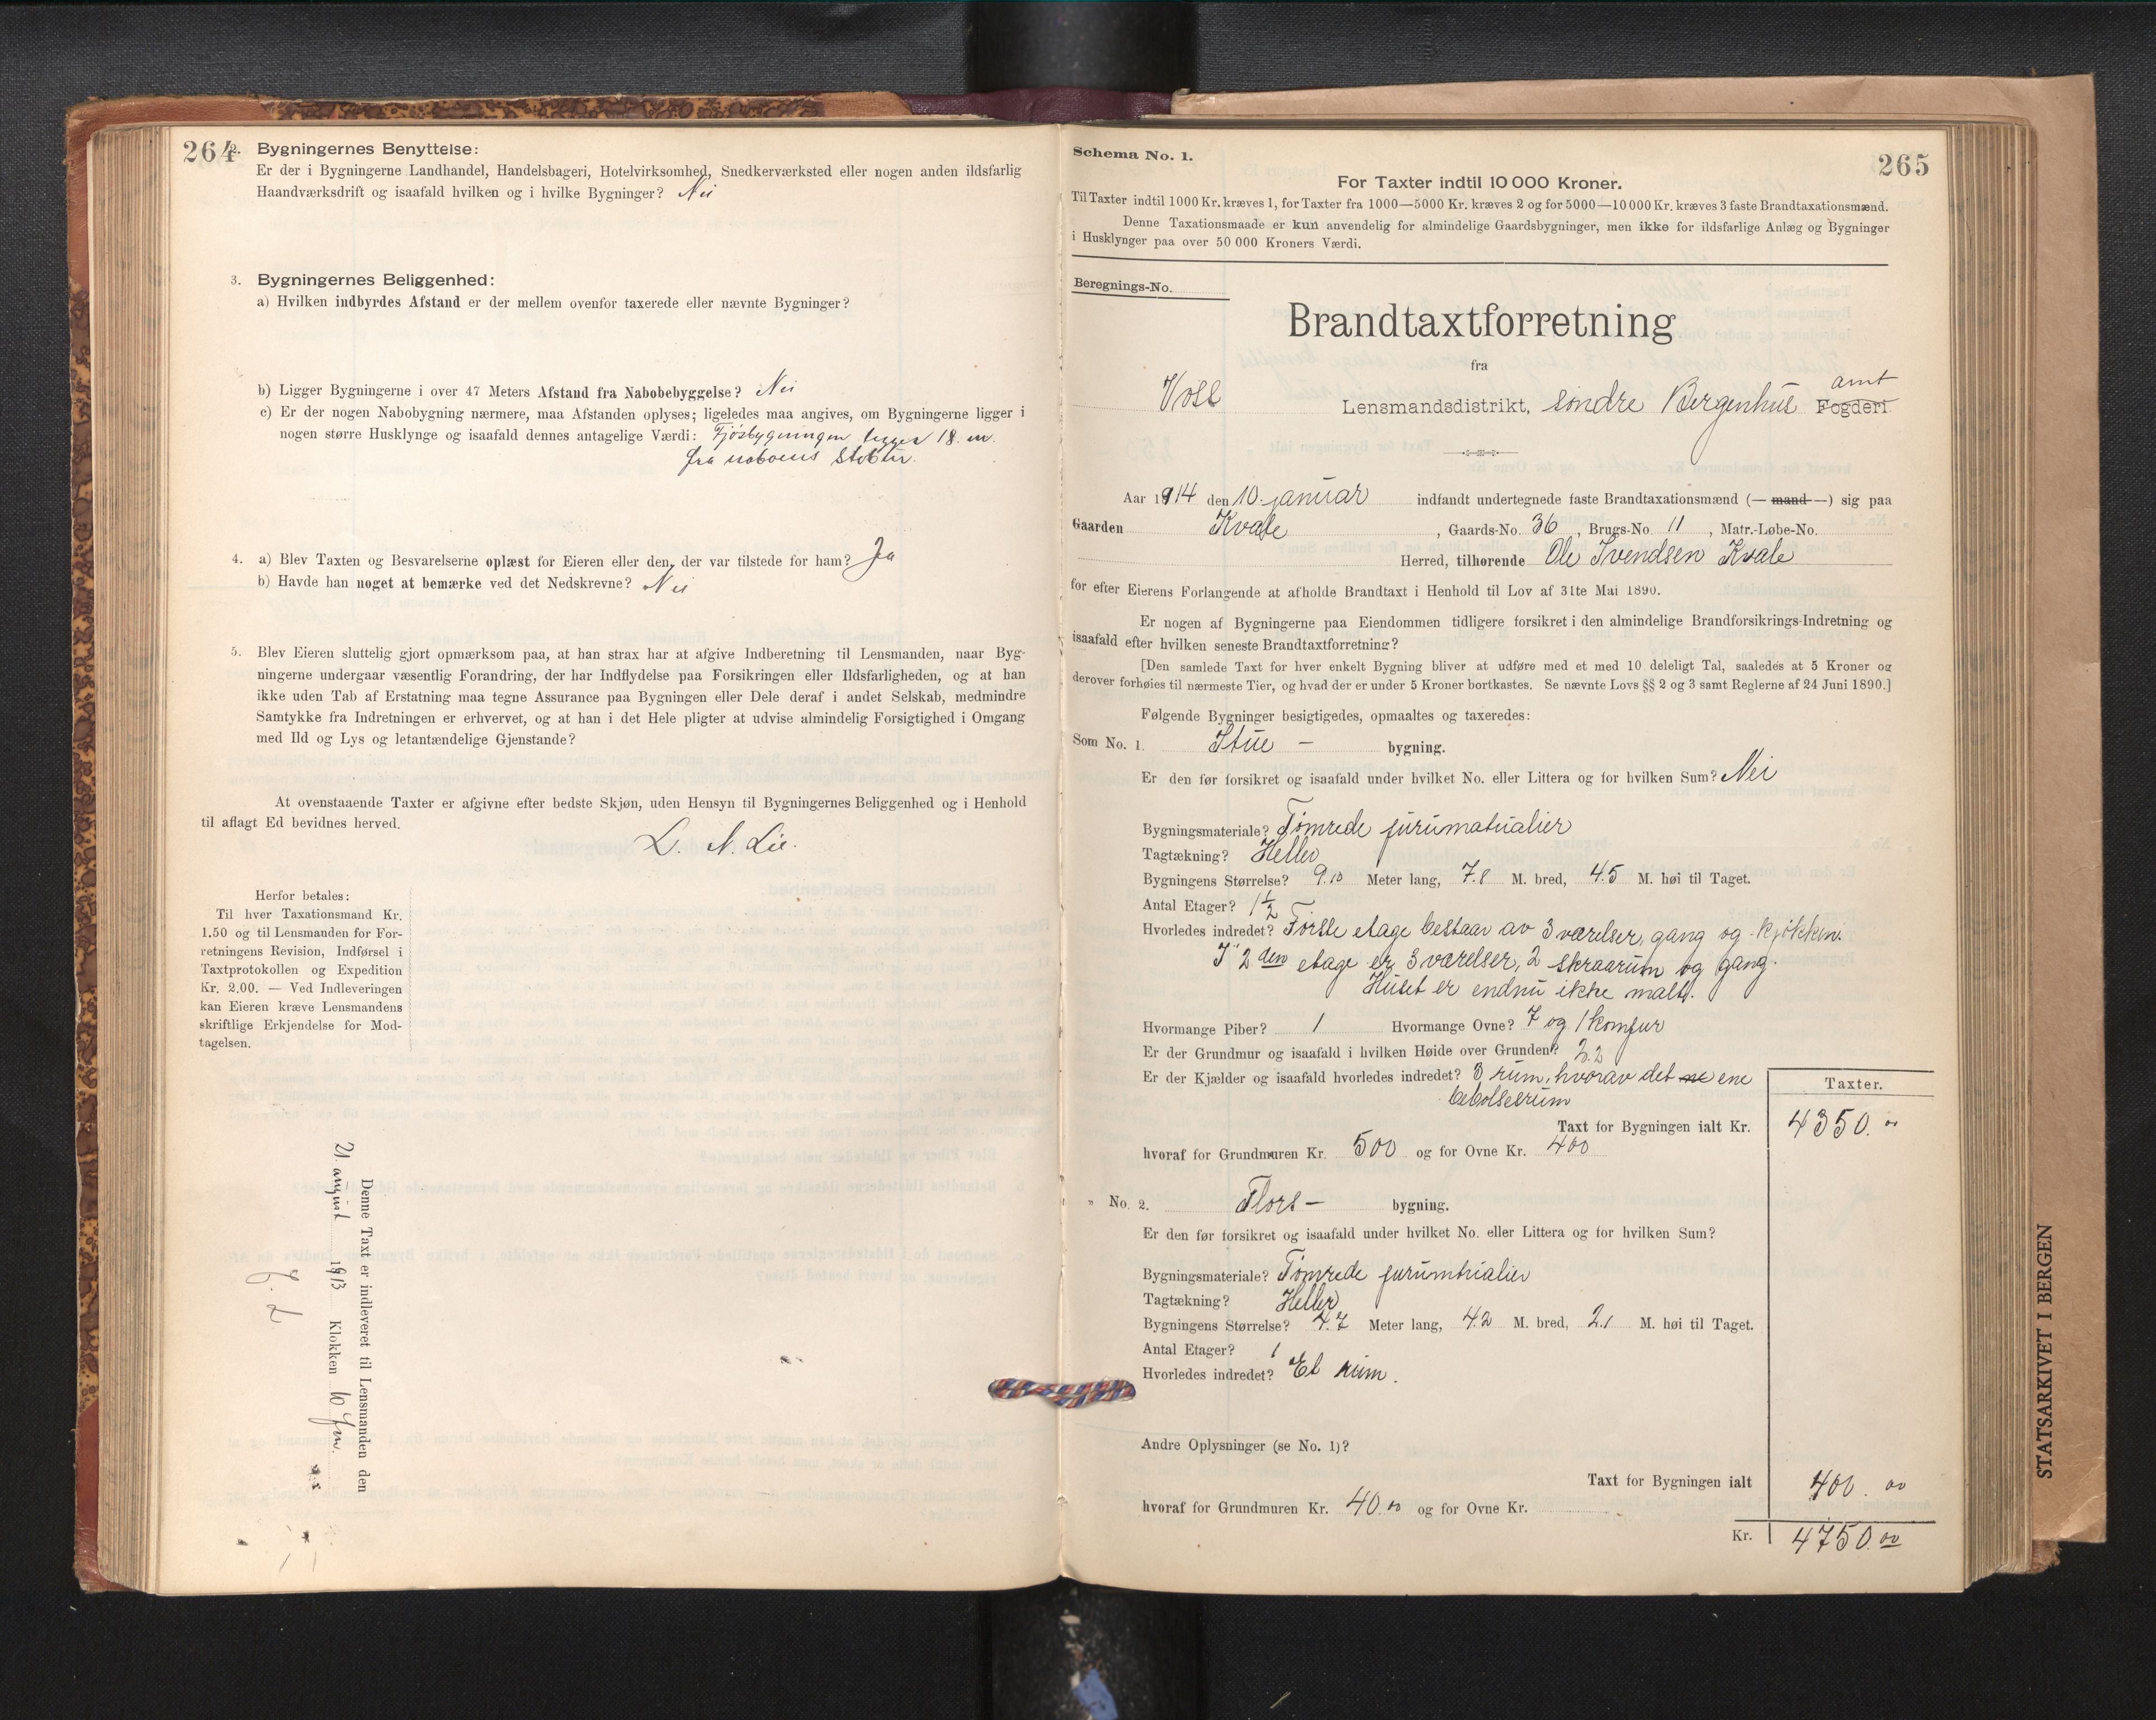 264
2. Bygningernes Benyttelse:
Er der i Bygningerne Landhandel, Handelsbageri, Hotelvirksomhed, Snedkerværksted eller nogen anden ildsfarlig
Haandværksdrift og isaafald hvilken og i hvilke Bygninger? Nei
3. Bygningernes Beliggenhed:
a) Hvilken indbyrdes Afstand er der mellem ovenfor taxerede eller nævnte Bygninger?
b) Ligger Bygningerne i over 47 Meters Afstand fra Nabobebyggelse? Nei
c) Er der nogen Nabobygning nærmere, maa Afstanden oplyses; ligeledes maa angives, om Bygningerne ligger i
nogen større Husklynge og isaafald dennes antagelige Værdi: Fjösbygningen ligger 18. m.
fra naboens
4. a) Blev Taxten og Besvarelserne oplæst for Eieren eller den, der var tilstede for ham? Ja
b) Havde han noget at bemærke ved det Nedskrevne? Nei
5. Blev Eieren sluttelig gjort opmærksom paa, at han strax har at afgive Indberetning til Lensmanden, naar Byg-
ningerne undergaar væsentlig Forandring, der har Indflydelse paa Forsikringen eller Ildsfarligheden, og at han
ikke uden Tab af Erstatning maa tegne Assurance paa Bygningen eller Dele deraf i andet Selskab, medmindre
Samtykke fra Indretningen er erhvervet, og at han i det Hele pligter at udvise almindelig Forsigtighed i Omgang
med Ild og Lys og letantændelige Gjenstande?
At ovenstaaende Taxter er afgivne efter bedste Skjøn, uden Hensyn til Bygningernes Beliggenhed og i Henhold
til aflagt Ed bevidnes herved.
L. N. Lie.
Herfor betales:
Til hver Taxationsmand Kr.
1.50 og til Lensmanden for For-
retningens Revision, Indførsel i
Taxtprotokollen og Expedition
Kr. 2.00. — Ved Indleveringen
kan Eieren kræve Lensmandens
skriftlige Erkjendelse for Mod-
tagelsen.
Denne Taxt er indleveret til Lensmanden den
21 august 1913 Klokken 10 fm.
265
Schema No. 1.
For Taxter indtil 10 000 Kroner.
Til Taxter indtil 1000 Kr. kræves 1, for Taxter fra 1000—5000 Kr. kræves 2 og for 5000—10 000 Kr. kræves 3 faste Brandtaxationsmænd.
Denne Taxationsmaade er kun anvendelig for almindelige Gaardsbygninger, men ikke for ildsfarlige Anlæg og Bygninger
i Husklynger paa over 50 000 Kroners Værdi.
Beregnings-No.
Brandtaxtforretning
fra
Voss Lensmandsdistrikt, söndre Bergenhus amt Fogderi
Aar 1914 den 10. januar indfandt undertegnede faste Brandtaxationsmænd (— mand —) sig paa
Gaarden Kvale, Gaards-No. 36, Brugs-No. 11, Matr.-Løbe-No.
Herred, tilhørende Ole Svendsen Kvale
for efter Eierens Forlangende at afholde Brandtaxt i Henhold til Lov af 31te Mai 1890.
Er nogen af Bygningerne paa Eiendommen tidligere forsikret i den almindelige Brandforsikrings-Indretning og
isaafald efter hvilken seneste Brandtaxtforretning?
[Den samlede Taxt for hver enkelt Bygning bliver at udføre med et med 10 deleligt Tal, saaledes at 5 Kroner og
derover forhøies til nærmeste Tier, og hvad der er under 5 Kroner bortkastes. Se nævnte Lovs §§ 2 og 3 samt Reglerne af 24 Juni 1890.]
Følgende Bygninger besigtigedes, opmaaltes og taxeredes:
Som No. 1. Stue – bygning.
Er den før forsikret og isaafald under hvilket No. eller Littera og for hvilken Sum? Nei
Bygningsmateriale? Tömrede furumaterialier
Tagtækning? Heller
Bygningens Størrelse? 9.10 Meter lang, 7.8 M. bred, 4.5 M. høi til Taget.
Antal Etager? 1½
Hvorledes indredet? Förste etage bestaar av 3 værelser, gang og kjökken.
I 2den etage er 3 værelser, 2 skraarum og gang.
Huset er endnu ikke malt.
Hvormange Piber? 1 Hvormange Ovne? 7 og 1 komfur
Er der Grundmur og isaafald i hvilken Høide over Grunden? 2.2
Er der Kjælder og isaafald hvorledes indredet? 3 rum, hvorav det ene
bebolsesrum
Taxter.
Taxt for Bygningen ialt Kr. 4350.00
hvoraf for Grundmuren Kr. 500 og for Ovne Kr. 400
" No. 2. Flors – bygning.
Er den før forsikret og isaafald under hvilket No. eller Littera og for hvilken Sum?
Bygningsmateriale? Tömrede furumtrialier
Tagtækning? Heller
Bygningens Størrelse? 4.7 Meter lang, 4.2 M. bred, 2.1 M. høi til Taget.
Antal Etager? 1
Hvorledes indredet? Et rum.
Andre Oplysninger (se No. 1)?
Taxt for Bygningen ialt 400.00
hvoraf for Grundmuren Kr. 40.00 og for Ovne Kr.
Kr. 4750.00
STATSARKIVET I BERGEN